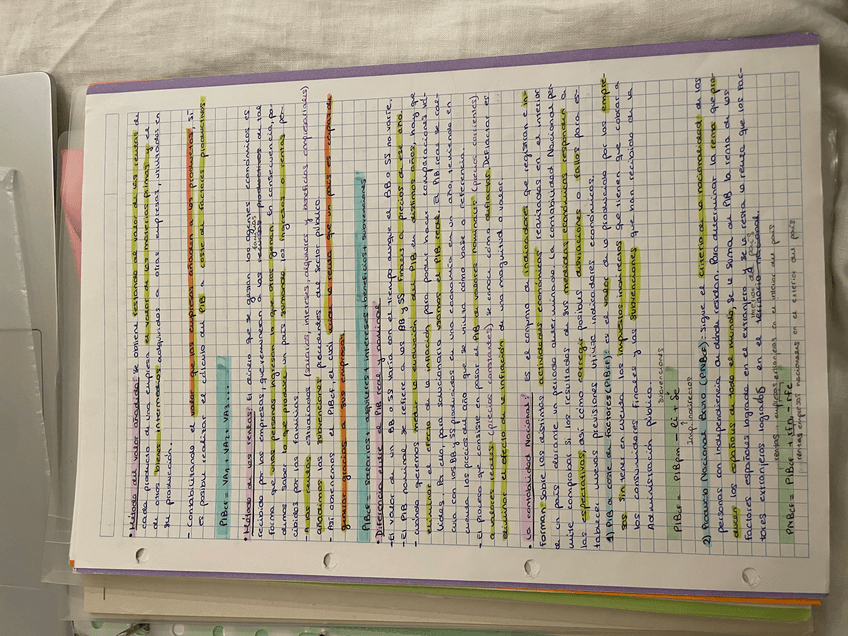 • Método del valor añadido: Se obtiene restando al valor de las ventas de
cada producto de una empresa el valor de las materias primas y el
de otros bienes intermedios adquiridos a otras empresas, utilizados en
su producción.
- Contabilizando el valor que las empresas añaden a los productos, sí
es posible realizar el cálculo del PIB a coste de factores productivos
PIBcf = VA1 + VA2 + VA3 + ...
• Método de las rentas: El dinero que se gastan los agentes económicos es
recibido por las empresas, que remuneran a las familias de tal
forma que unas personas ingresan lo que otras ganan. En consecuencia, po-
demos saber lo que produce un país sumando los ingresos o rentas per-
cibidos por las familias.
- A las rentas obtenidas (salarios, intereses, alquileres y beneficios empresariales)
añadimos las subvenciones procedentes del sector público.
- Así obtenemos el PIBcf, el cual mide la renta que un país es capaz de
generar gracias a sus empresas.
PIBcf = Salarios + alquileres + intereses + beneficios + subvenciones
• Diferencia entre el PIB real y nominal
- El valor de un BB o SS varía con el tiempo aunque el BB o SS no varíe.
- El PIB nominal se refiere a los BB y SS finales a precios de ese año.
- Cuando queremos medir la evolución del PIB en distintos años, hay que
eliminar el efecto de la inflación para poder hacer comparaciones vá-
lidas. Pa ello, para solucionarlo usamos el PIB real. El PIB real se cal-
cula con los BB y SS producidos en una economía en un año, teniendo en
cuenta los precios del año que se utiliza como base o referencia.
- El proceso que consiste en pasar el PIB de valores nominales (precios corrientes)
a valores reales (precios constantes) se conoce como deflactar. Deflactar es
eliminar el efecto de la inflación de una magnitud o valor.
• La contabilidad Nacional: Es el conjunto de indicadores que registran e in-
forman sobre las distintas actividades económicas realizadas en el interior
de un país durante un periodo determinado. La contabilidad Nacional per-
mite comprobar si los resultados de sus medidas económicas responden a
las expectativas, así como corregir posibles desviaciones o fallos para es-
tablecer nuevas previsiones utiliza indicadores económicos.
1) PIB a coste de factores (PIBcf): es el valor de lo producido por las empre-
sas sin tener en cuenta los impuestos indirectos que tienen que cobrar a
los consumidores finales y las subvenciones que han recibido de la
Administración pública.
Subvenciones
PIBcf = PIBpm - Ti + Se
2) Producto Nacional Bruto (PNBcf): Sigue el criterio de la nacionalidad de las
personas con independencia de dónde residan. Para determinar la renta que pro-
ducen los españoles de todo el mundo, se le suma al PIB la renta de los
factores españoles lograda en el extranjero y se le resta la renta que los fac-
tores extranjeros logrados en el
PNBcf = PIBcf + rfn - rfe
rentas empresas extranjeras en el interior del país
rentas empresas nacionales en el exterior del país